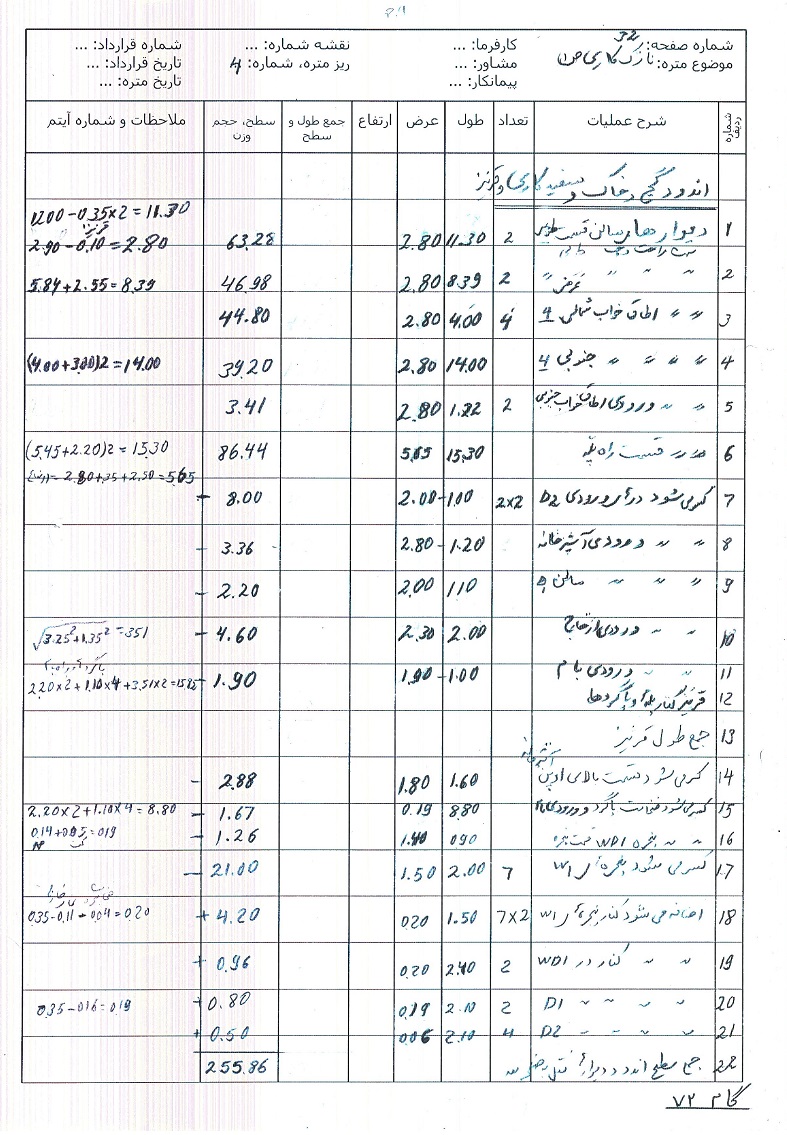 P.4
شماره صفحه: 32 کارفرما: ... نقشه شماره: ... شماره قرارداد: ...
موضوع متره: نازک کاری مشاور: ... ریز متره، شماره: 4 تاریخ قرارداد: ...
پیمانکار: ... تاریخ متره: ...
شماره ردیف شرح عملیات تعداد طول عرض ارتفاع جمع طول و سطح سطح، حجم وزن ملاحظات و شماره آیتم
اندود گچ و خاک و سفیدکاری و قرنیز
12.00 - 0.35x2 = 11.30
1 دیوارهای سالن قسمت 2 11.30 2.80 63.28 2.90 - 0.10 = 2.80
2 〃 〃 〃 عرضی 2 8.39 2.80 46.98 5.84 + 2.55 = 8.39
3 〃 〃 اطاق خواب شمالی 4 4.00 2.80 44.80
4 〃 〃 〃 〃 جنوبی 14.00 2.80 39.20 (4.00 + 3.00)2 = 14.00
5 〃 〃 ورودی اطاق خواب جنوبی 2 1.22 2.80 3.41
6 〃 〃 قسمت راه پله 15.30 5.65 86.44 (5.45 + 2.20)2 = 15.30
2.80 + .35 + 2.50 = 5.65
7 کسر می شود درهای ورودی D2 2x2 1.00 2.00 - 8.00
8 〃 〃 ورودی آشپزخانه 1.20 2.80 - 3.36
9 〃 〃 〃 سالن 1.10 2.00 - 2.20
10 〃 〃 ورودی از خارج 2.00 2.30 - 4.60 √3.25² + 1.35² = 3.51
11 〃 〃 ورودی بام 1.00 1.90 - 1.90 2.20x2 + 1.10x4 + 3.51x2 = 15.82
12 قرنیز کنار پله و پاگردها
13 جمع طول قرنیز
آشپزخانه
14 کسر می شود قسمت بالای اوپن 1.60 1.80 - 2.88
15 کسر می شود ضخامت پاگرد و ورودی 8.80 0.19 - 1.67 2.20x2 + 1.10x4 = 8.80
16 〃 〃 پنجره WD1 قسمت پنجره 0.90 1.40 - 1.26 0.14 + 0.05 = 0.19
17 کسر می شود پنجره های W1 7 2.00 1.50 - 21.00
18 اضافه می شود کنار پنجره های W1 7x2 1.50 0.20 + 4.20 0.35 - 0.11 - 0.04 = 0.20
19 〃 〃 کنار در WD1 2 2.40 0.20 + 0.96
20 〃 〃 〃 〃 D1 2 2.10 0.19 + 0.80 0.35 - 0.16 = 0.19
21 〃 〃 〃 〃 D2 4 2.10 0.06 + 0.50
22 جمع سطح اندود دیوارها 255.86
گام ۷۲